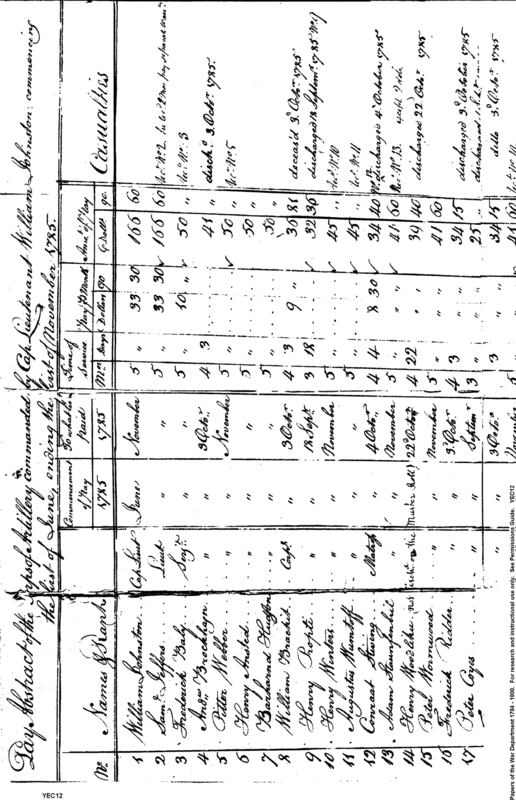 Pay Abstract of the Troops of Artillery commanded by Cap. Lieutenant William Johnston commencing
the first of June, ending the last of November 1785.
No. Names & Rank Commencement of Pay 1785 To what time paid 1785 Time of Service Mos. days Pay P Month Dollars 90 Amt. of Pay Dolls 90 Casualties
1 William Johnston Cap. Lieut June November 5 " 33 30 166 60
2 Saml. Jeffers Lieut " " 5 " 33 30 166 60 No. 2
3 Frederick Baby Sergt. " " 5 " 10 " 50 " No. 3
4 Andrw. Brechtlegn " " 3 Octr. 4 3 41 " disch. 3 Octr. 1785.
5 Pitter Webber " " November 5 " 50 " No. 5
6 Henry Anshid " " " 5 " 50 "
7 Bernharard Haugton " " " 5 " 50 "
8 William Brachit Capl. " 3 Octr. 4 3 9 " 36 81 deceased 3d. Octr. 1785
9 Henry Propti " " 18 Sept. 3 18 32 36 discharged 18 Septemr. 1785 No. 9
10 Henry Winters " " Novembr. 5 " 45 " No. 10
11 Augustus Mumtoff " " " 5 " 45 " No. 11
12 Conraat Stwing Matross " 4 Octobr. 4 4 8 30 34 40 discharged 4. October 1785
13 Adam Straufanheit " " November 5 " 41 60 No. 13.
14 Henry Woodsides not on the Muster Roll 22d Octobr. 4 22 39 40 discharged 22d Octr. 1785
15 Peter Wormwood " " November 5 " 41 60
16 Frederick Ridder " " 3d. Octr. 4 3 34 15 discharged 3d. October 1785
" " Septemr. 3 " 25 "
17 Peter Coyis " " 3 Octobr. 4 3 34 15 ditto 3d. Octobr. 1785
November 5 " 41 60
YEC12
Papers of the War Department 1784 - 1800. For research and instructional use only. See Permissions Guide. YEC12